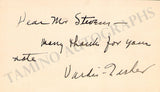 Dear Mr Stevens —
many thanks for your
note
Vardis Fisher
TAMINO AUTOGRAPHS